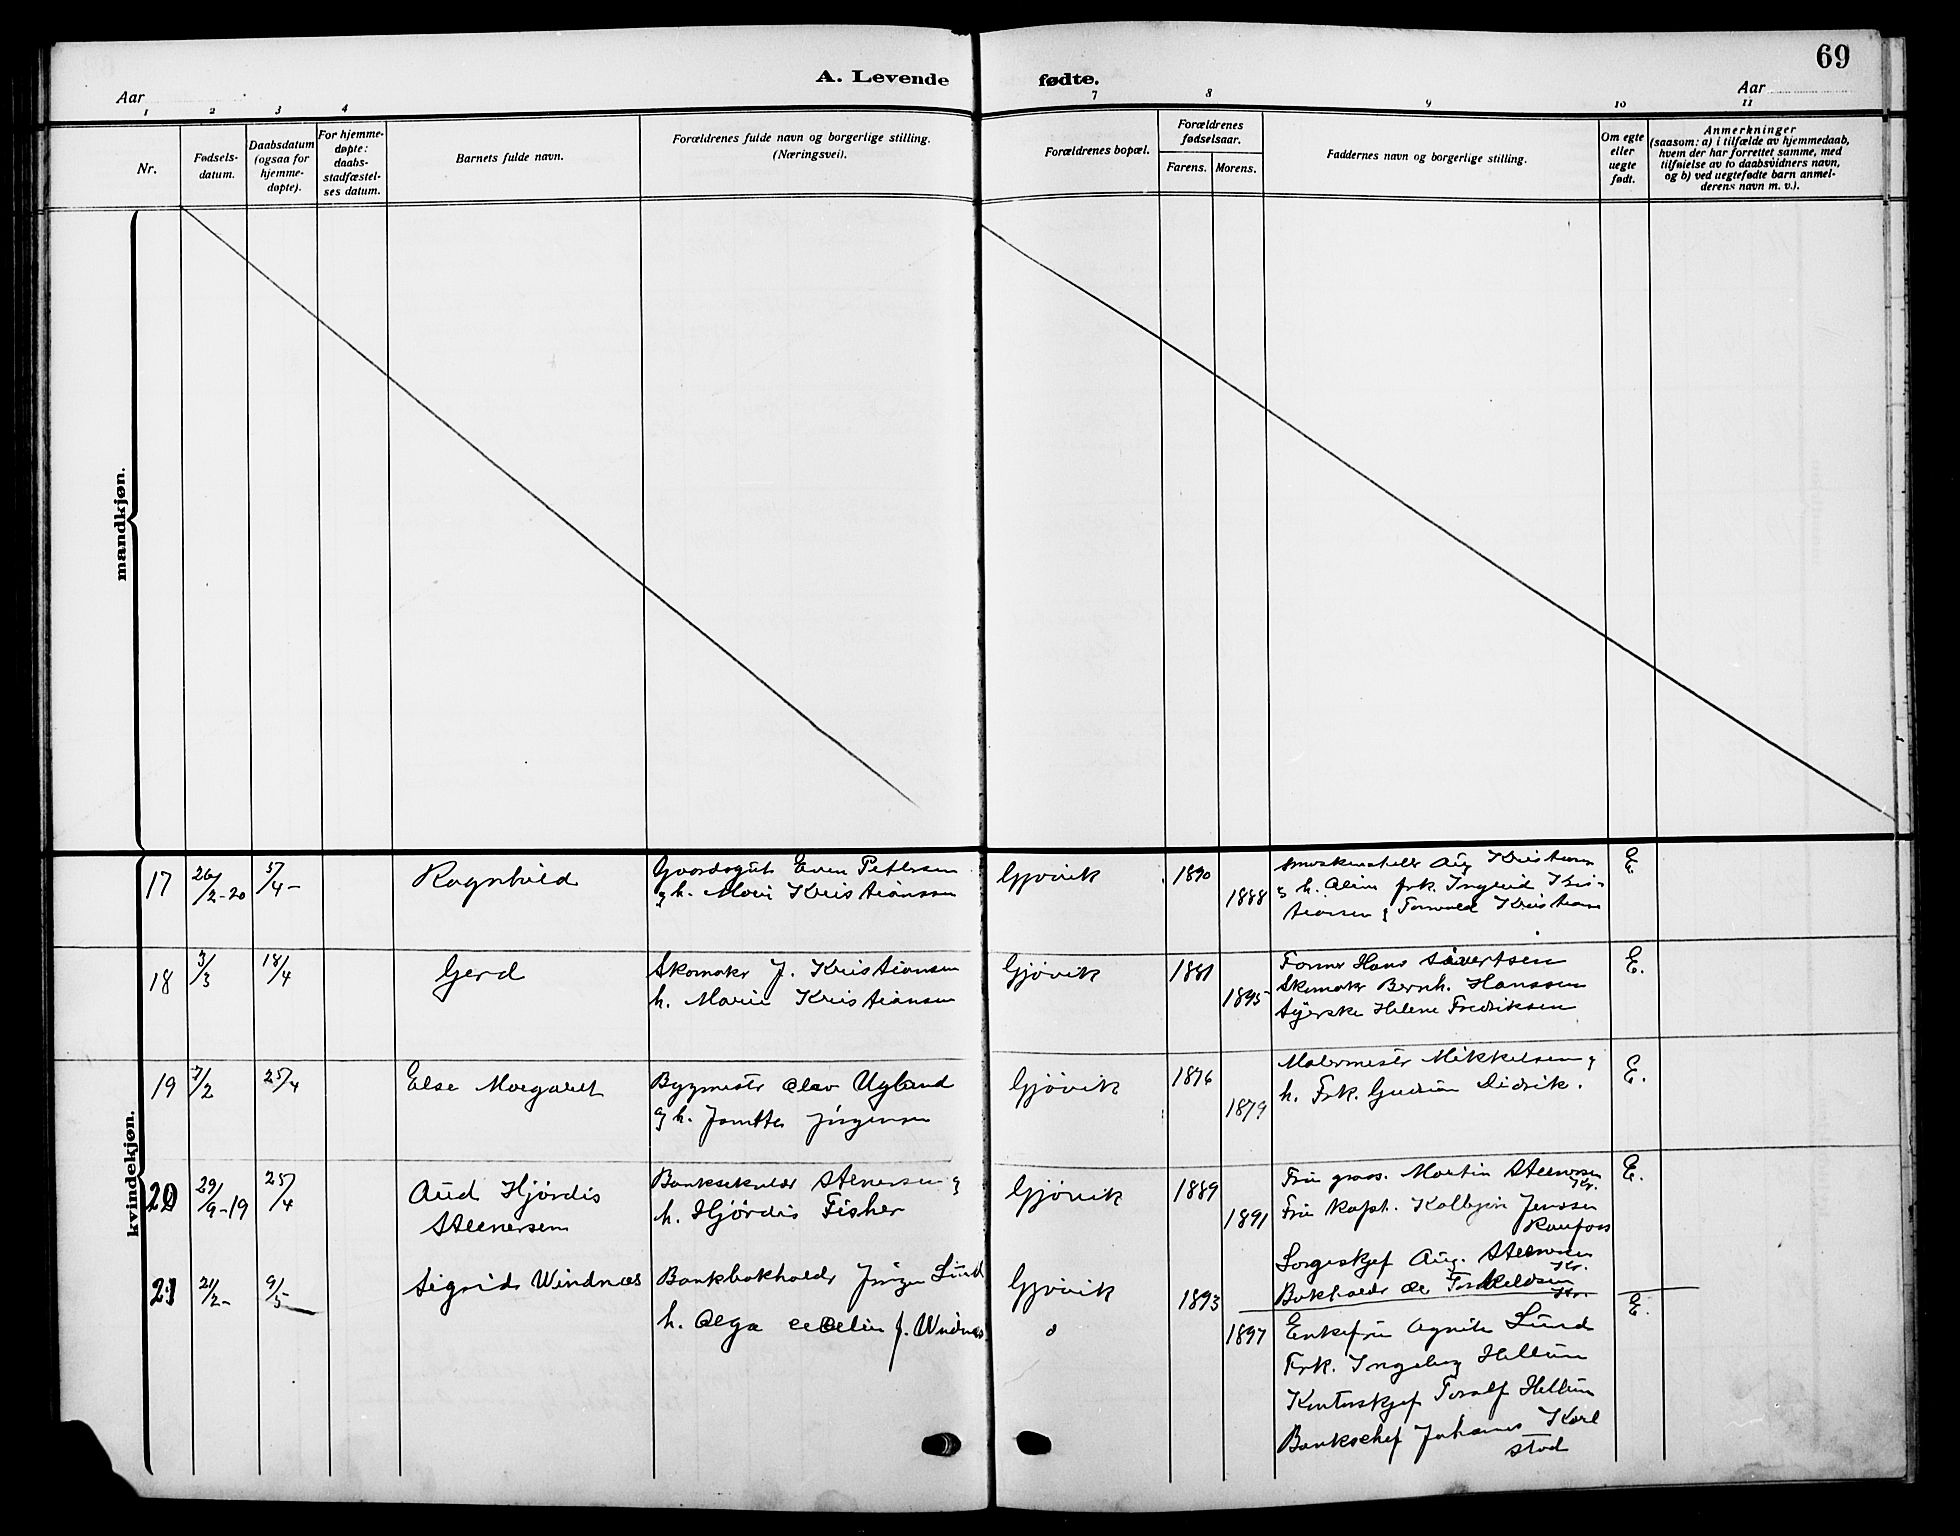 69
A. Levende fødte.
Aar
Aar
1 2 3 4 7 8 9 10 11
Nr.
Fødsels-
datum.
Daabsdatum
(ogsaa for
hjemme-
døpte).
For hjemme-
døpte:
daabs-
stadfæstel-
ses datum.
Barnets fulde navn.
Forældrenes fulde navn og borgerlige stilling.
(Næringsvei).
Forældrenes bopæl.
Forældrenes
fødselsaar.
Farens. Morens.
Faddernes navn og borgerlige stilling.
Om egte
eller
uegte
født.
Anmerkninger
(saasom: a) i tilfælde av hjemmedaab,
hvem der har forrettet samme, med
tilføielse av to daabsvidners navn,
og b) ved uegtefødte barn anmel-
derens navn m. v.).
mandkjøn.
kvindekjøn.
17
26/2-20
5/4-
Ragnhild
Gaardsgut Even Pettersen
og h. Mari Kristiansen
Gjøvik
1890
1888
Aug Kristiansen
h. Aline frk. Ingrid Kris-
tiansen Kristiansen
E
18
3/3
18/4
Gerd
Skomaker J. Kristiansen
h. Marie Kristiansen
Gjøvik
1881
1895
Former Hans Sivertsen
Skomaker Bernh. Hanssen
Syerske Helene Fredriksen
E.
19
7/2
25/4
Else Margaret
Bygmester Olav Ugland
og h. Jørgensen
Gjøvik
1876
1879
Malermester Mikkelsen
h. Frk. Gudrun Didrik.
E.
20
29/9-19
25/4
Aud Hjørdis
Steenersen
Banksekretær Stenersen og
h. Hjørdis Fisher
Gjøvik
1889
1891
Fru gross. Martin Steenersen
Kr.
Fru kapt. Kolbjørn Jenssen
Raufoss
Steenersen
Kr.
Bokholder Torkeldsen
Kr.
E.
21
21/2-
9/5
Sigrid Windnæs
Bankbokholder Jørgen Lund
h. Olga f. Windnæs
Gjøvik
1893
1897
Enkefru Agnete Lund
Frk. Ingeborg Hellum
Kontorskjef Toralf Hellum
Bankchef Johannes Karl
stad
E.